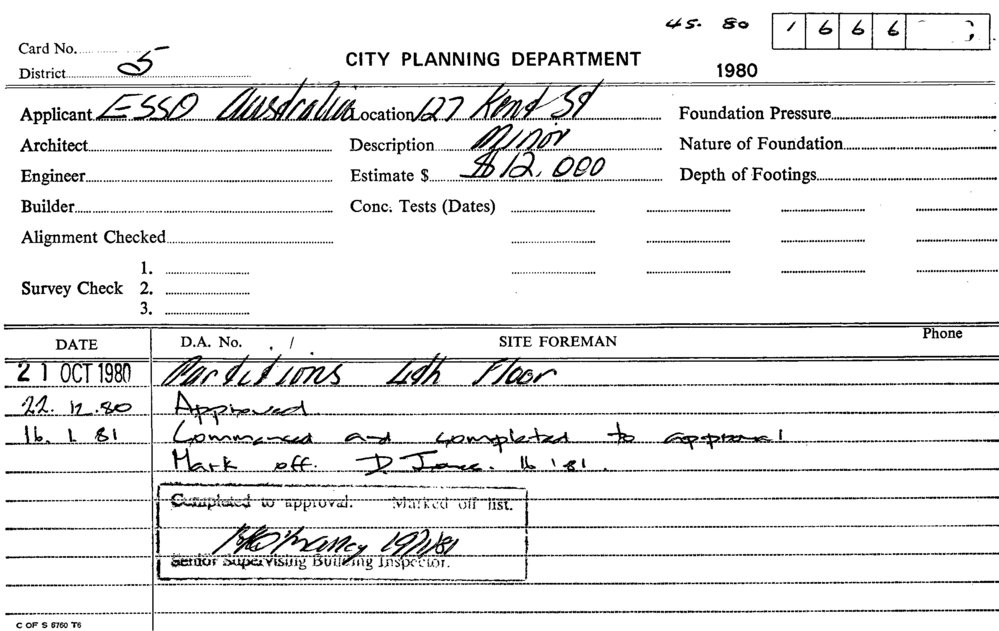 45. 80 1666
Card No.
CITY PLANNING DEPARTMENT
District 5
1980
Applicant ESSO Australia Location 127 Kent St Foundation Pressure
Architect Description Minor Nature of Foundation
Engineer Estimate $ $12,000 Depth of Footings
Builder Conc. Tests (Dates)
Alignment Checked
1.
Survey Check 2.
3.
DATE D.A. No. / SITE FOREMAN Phone
21 OCT 1980 Partitions 4th Floor
22. 12. 80 Approved
16. 1 81 Commenced and completed to approval
Mark off. D. Jones. 16 1 81.
Completed to approval. Marked off list.
19/1/81
Senior Supervising Building Inspector.
C OF S 6760 T6